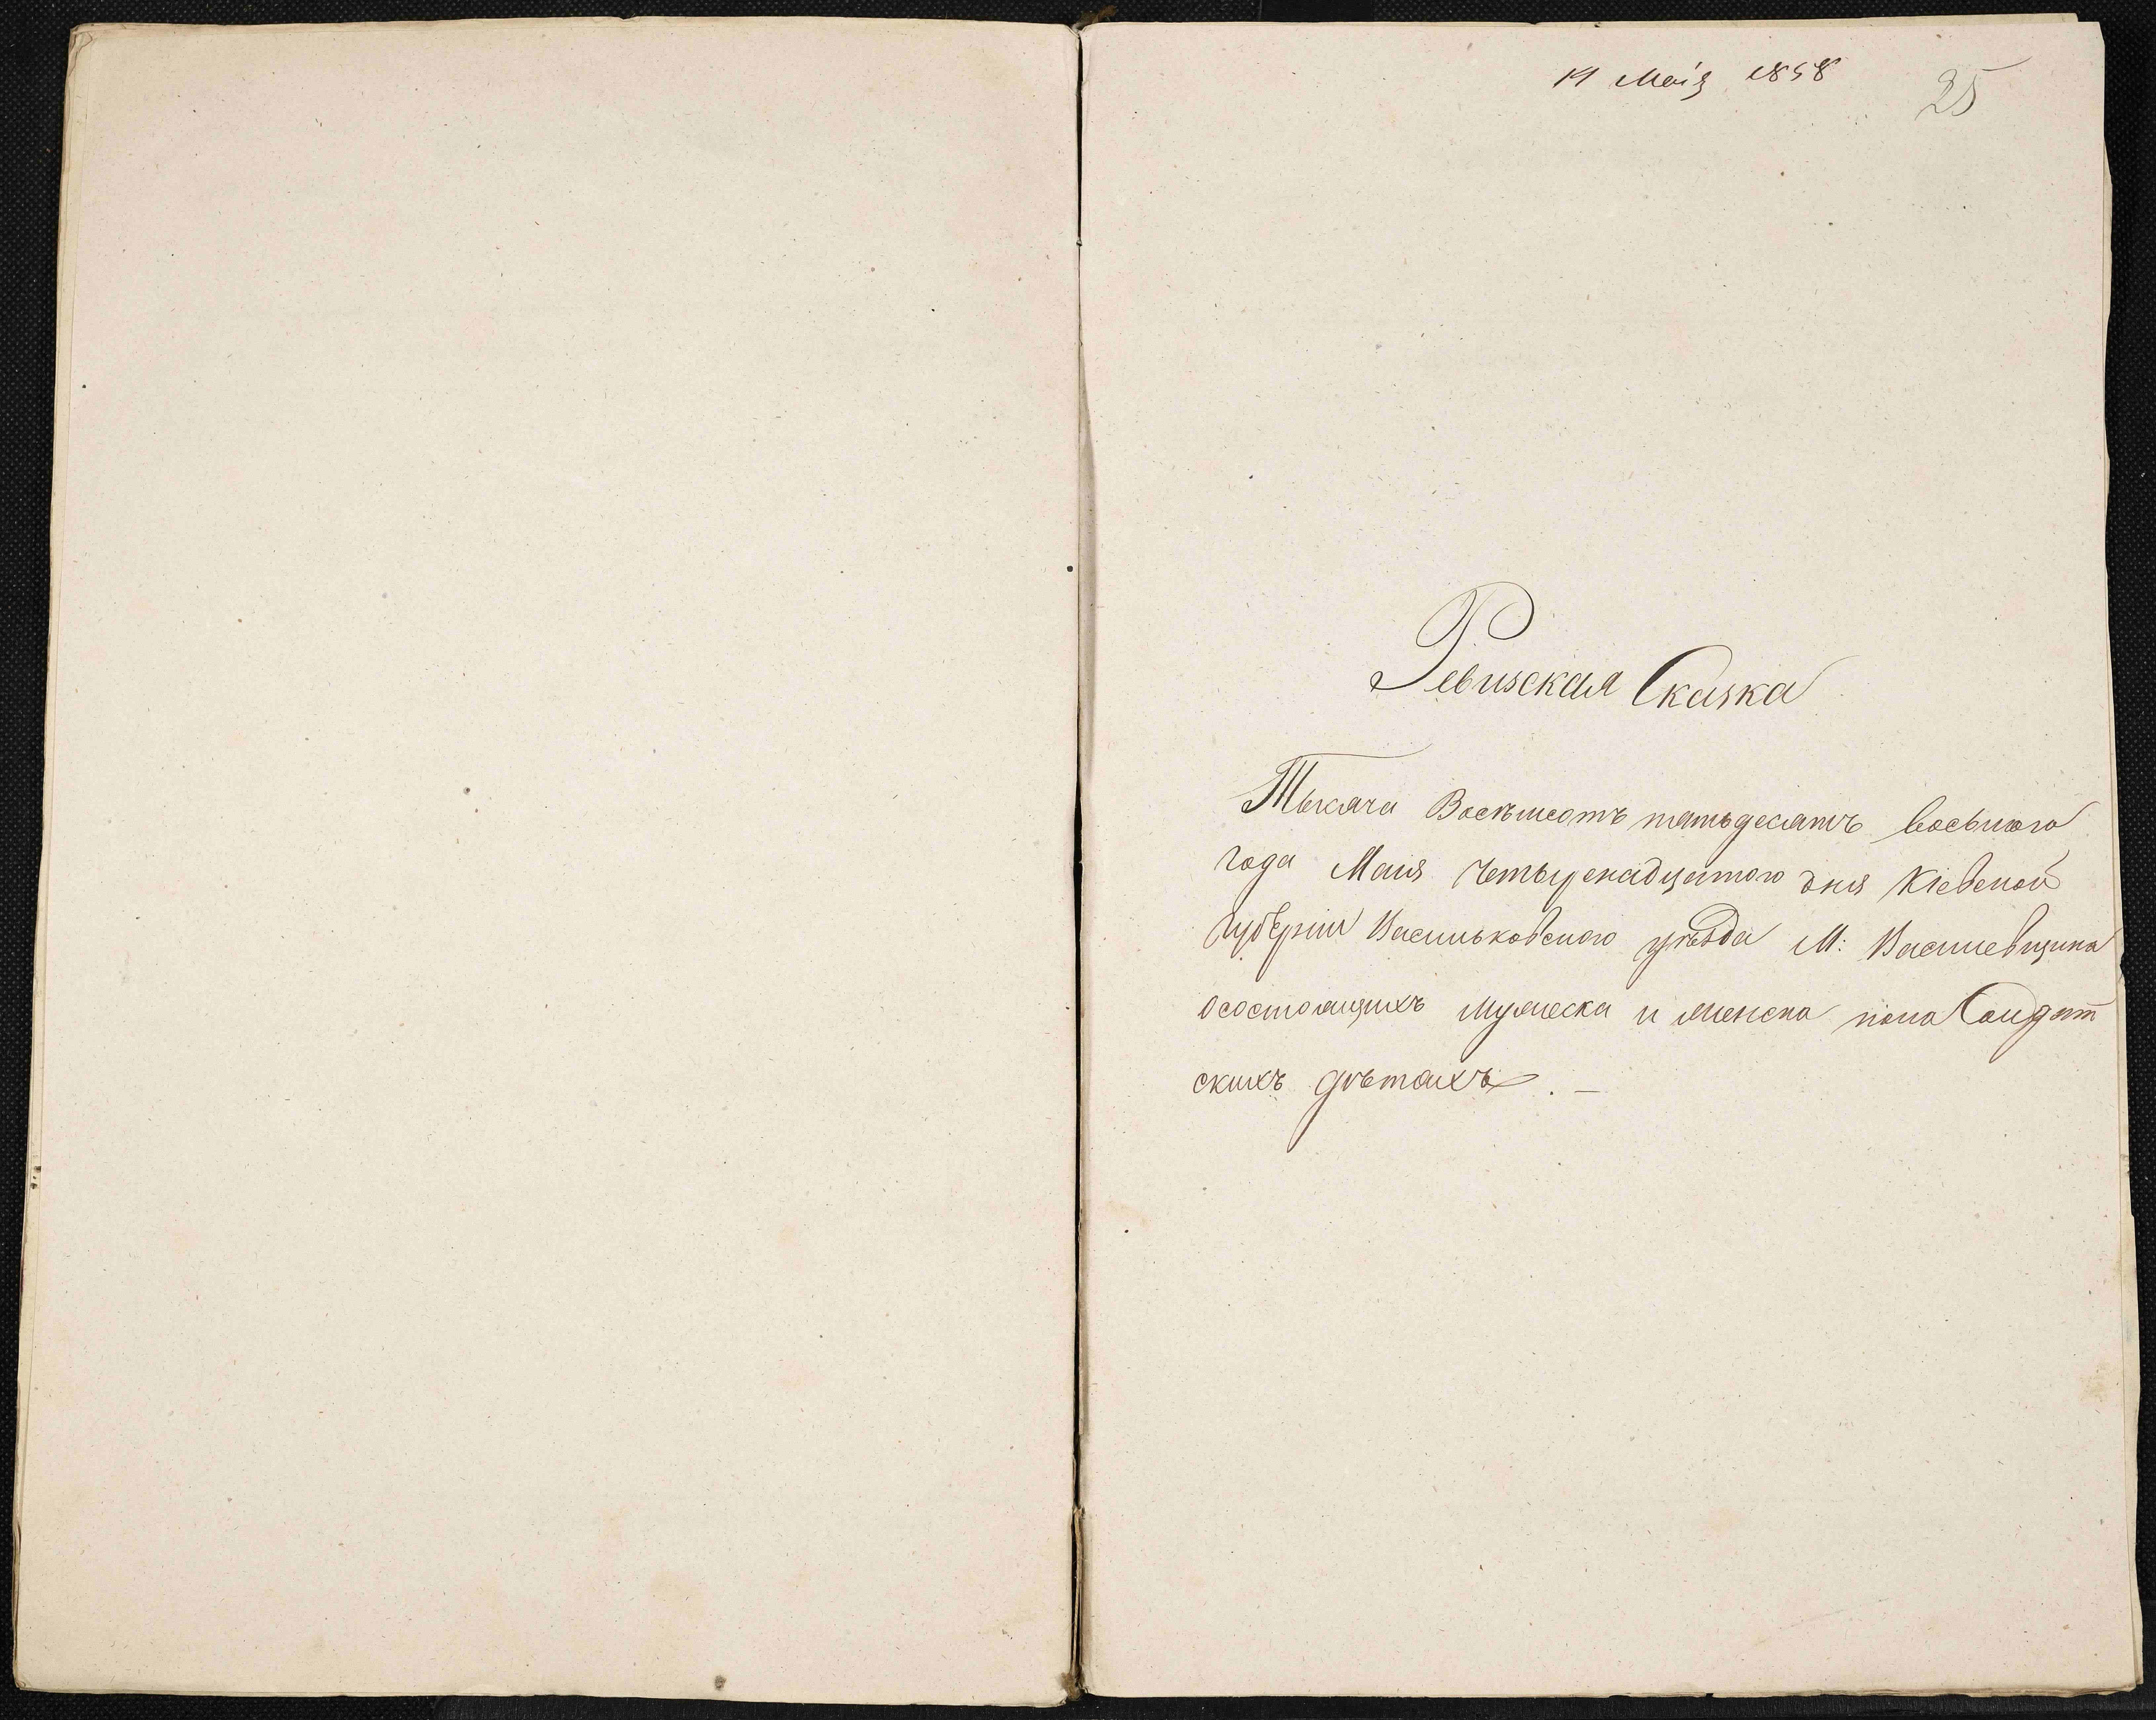 14 Маія 1858
25
Ревизская Сказка
Тысяча Восемьсотъ пятьдесятъ восьмого
года Маія Четыренадцятого дня Кіевской
Губерніи Васильковского уѣзда М:
осостоящихъ мужеска и женска пола Солдат
скихъ дѣтахъ. —